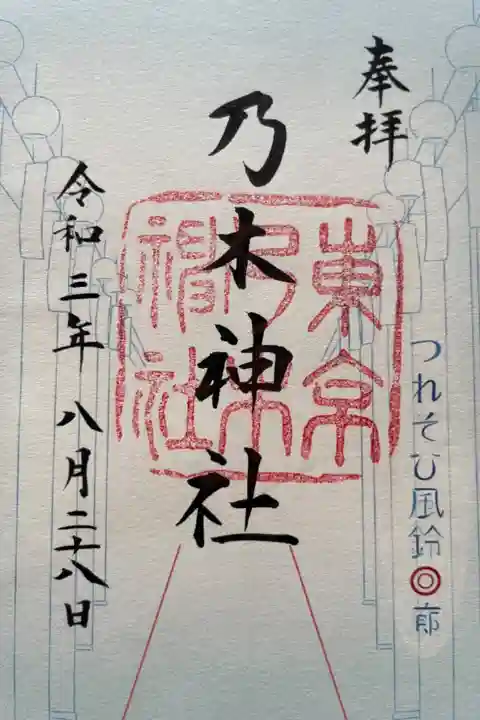 奉拝
つれそひ風鈴◎節
東京
乃木
神社
乃木神社
令和三年八月二十八日